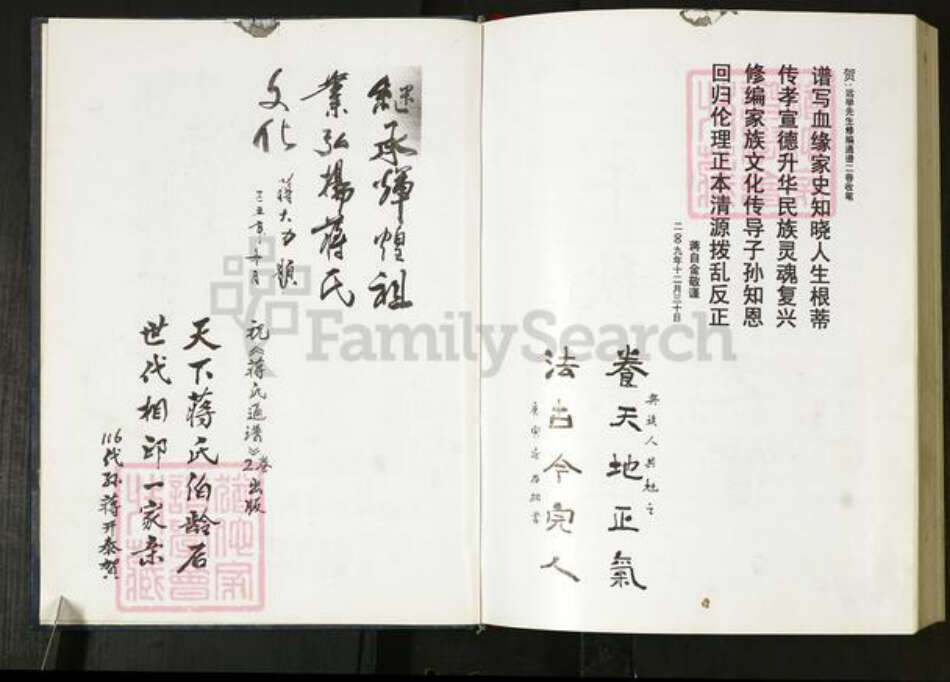 贺:远举先生修编通谱二卷收笔
谱写血缘家史知晓人生根蒂
传孝宣德升华民族灵魂复兴
修编家族文化传导子孙知恩
回归伦理正本清源拨乱反正
蒋自金敬谨
二〇〇九年十二月三十日
养天地正氣
法古今完人
与族人共勉之
庚寅
继承輝煌祖
業弘揚蒋氏
文化
蒋大力题
祝《蒋氏通谱》2卷出版
天下蒋氏伯龄后
世代相印一家亲
116代孙蒋开泰贺
FamilySearch